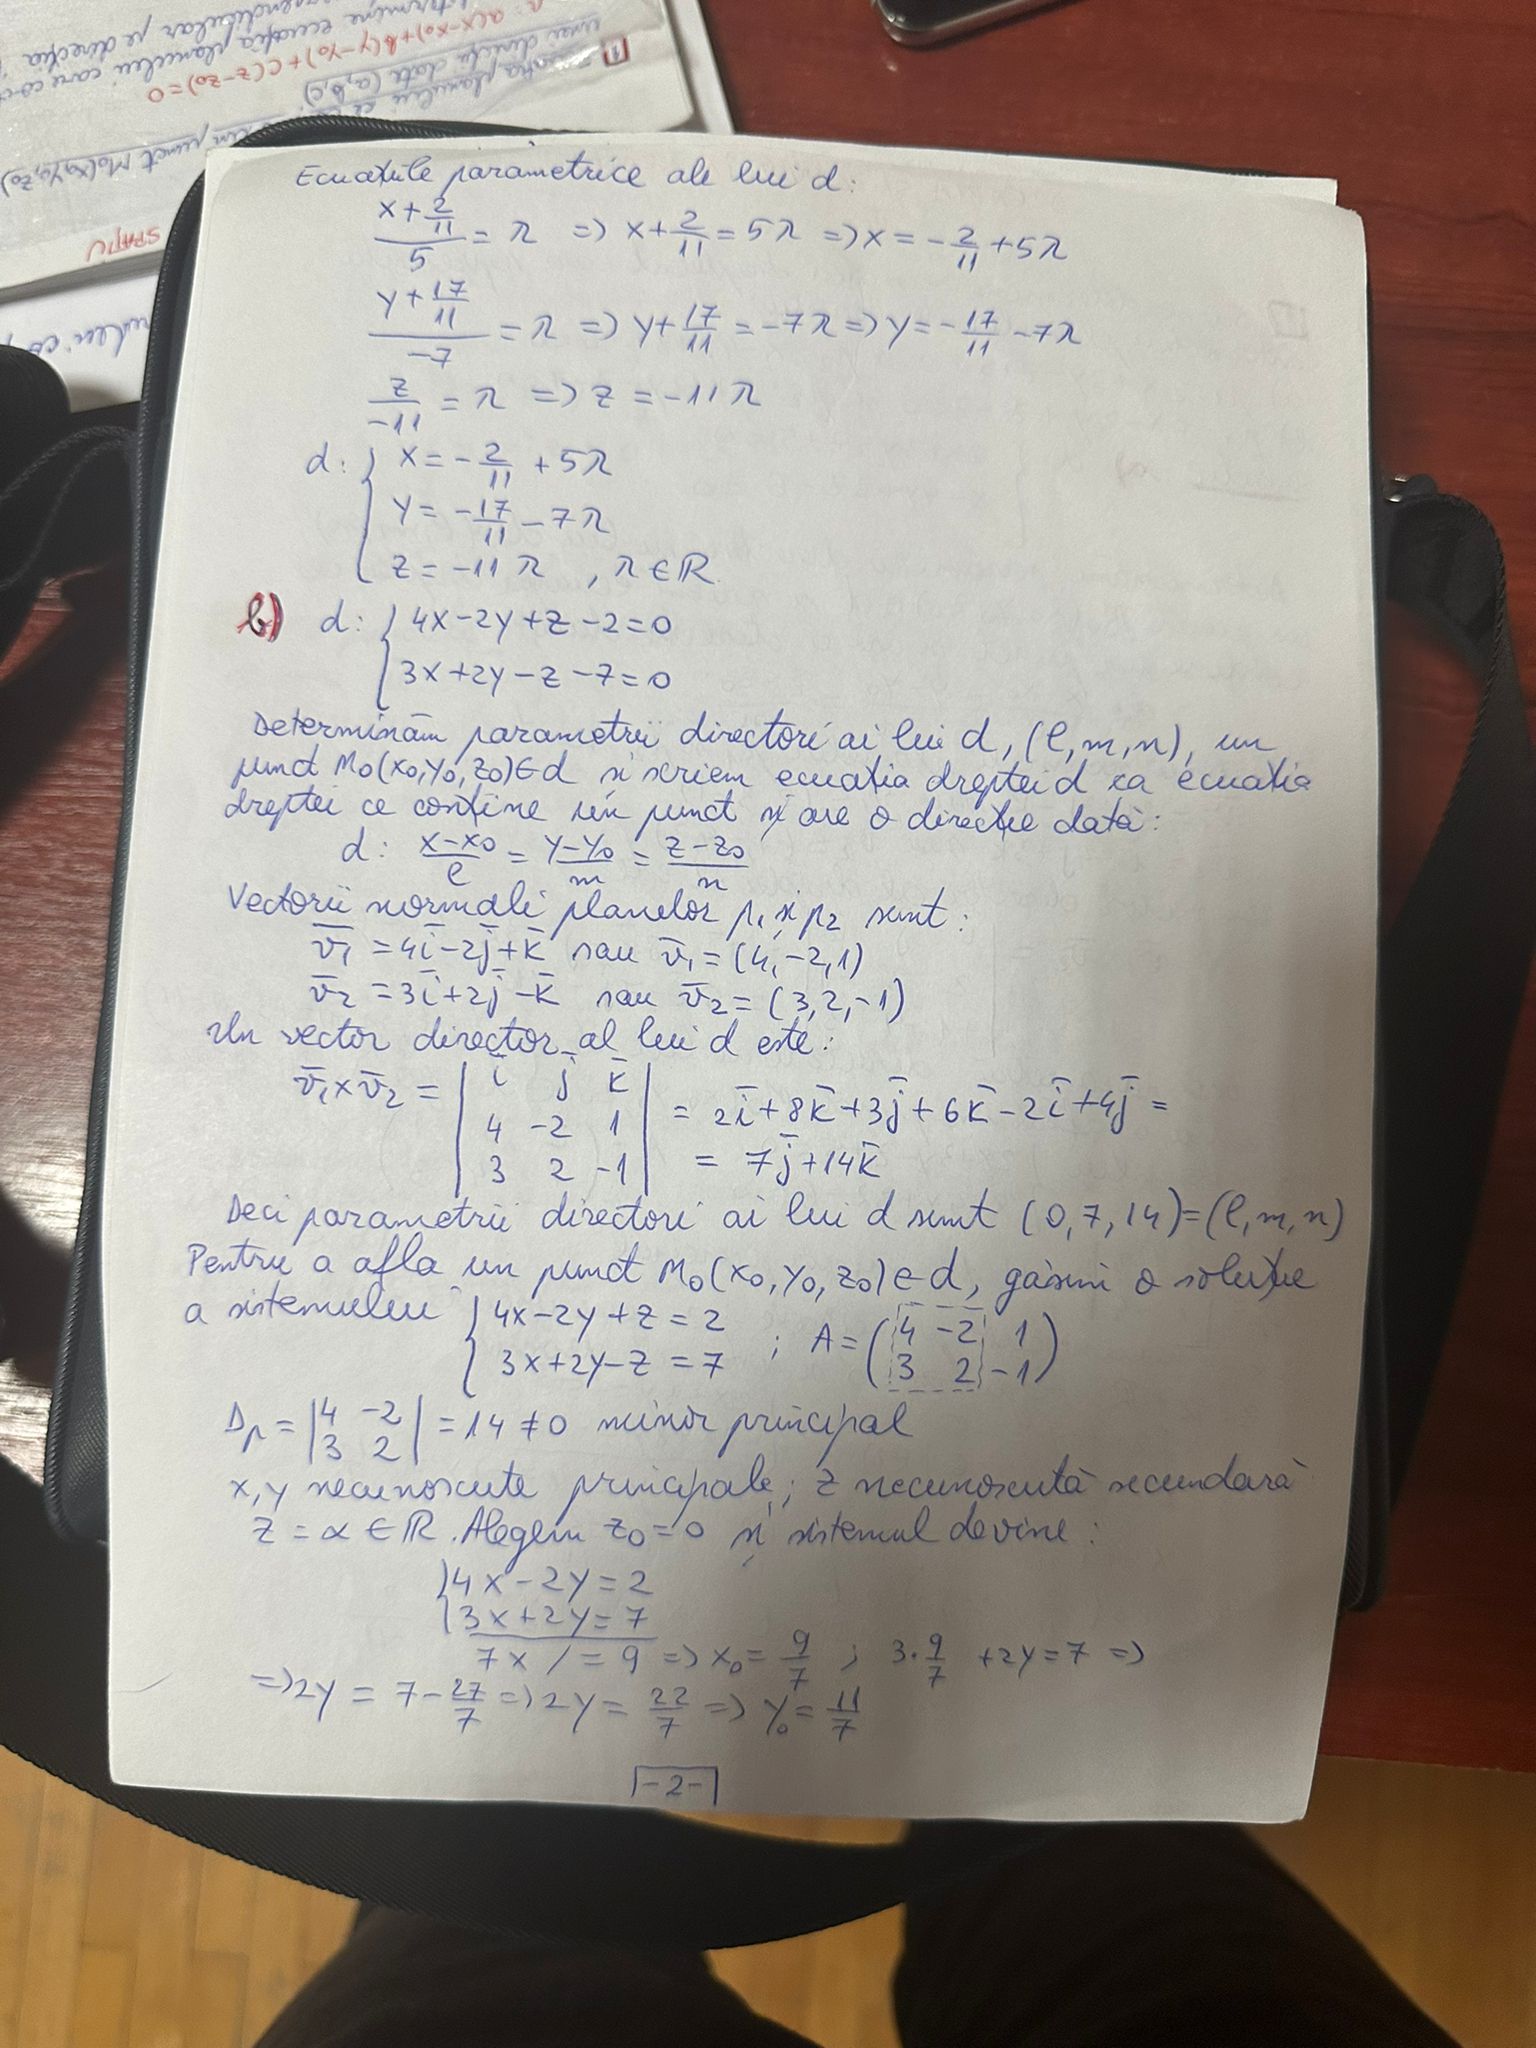 unei direcții date (a,b,c)
a(x-x0)+b(y-y0)+c(z-z0)=0
SPAȚIU
Ecuațiile parametrice ale lui d:
(x+2/11)/5 = λ => x+2/11 = 5λ => x = -2/11 + 5λ
(y+17/11)/-7 = λ => y+17/11 = -7λ => y = -17/11 - 7λ
z/-11 = λ => z = -11λ
d: { x = -2/11 + 5λ
y = -17/11 - 7λ
z = -11λ , λ∈R
b) d: { 4x-2y+z-2=0
3x+2y-z-7=0
Determinăm parametrii directori ai lui d, (l,m,n), un
punct M0(x0,y0,z0)∈d și scriem ecuația dreptei d ca ecuația
dreptei ce conține un punct și are o direcție dată:
d: (x-x0)/l = (y-y0)/m = (z-z0)/n
Vectorii normali planelor p1 și p2 sunt:
v̄1 = 4ī-2j̄+k̄ sau v̄1 = (4,-2,1)
v̄2 = 3ī+2j̄-k̄ sau v̄2 = (3,2,-1)
Un vector director al lui d este:
v̄1×v̄2 = | ī j̄ k̄ |
| 4 -2 1 | = 2ī+8k̄+3j̄+6k̄-2ī+4j̄ =
| 3 2 -1 | = 7j̄+14k̄
Deci parametrii directori ai lui d sunt (0,7,14)=(l,m,n)
Pentru a afla un punct M0(x0,y0,z0)∈d, găsim o soluție
a sistemului { 4x-2y+z = 2 ; A = ( 4 -2 1
3x+2y-z = 7 3 2 -1 )
Δp = | 4 -2 | = 14 ≠ 0 minor principal
| 3 2 |
x,y necunoscute principale; z necunoscută secundară
z = α ∈ R. Alegem z0=0 și sistemul devine:
{ 4x-2y=2
3x+2y=7
7x / = 9 => x0 = 9/7 ; 3·9/7 +2y=7 =>
=> 2y = 7-27/7 => 2y = 22/7 => y0 = 11/7
-2-